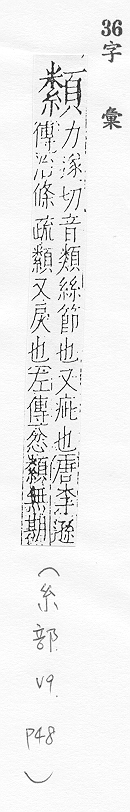 36字彙
纇力遂切音類絲節也又疵也唐李遜
傳治條疏纇又戾也左傳忿纇無期
(糸部 V9 P48)